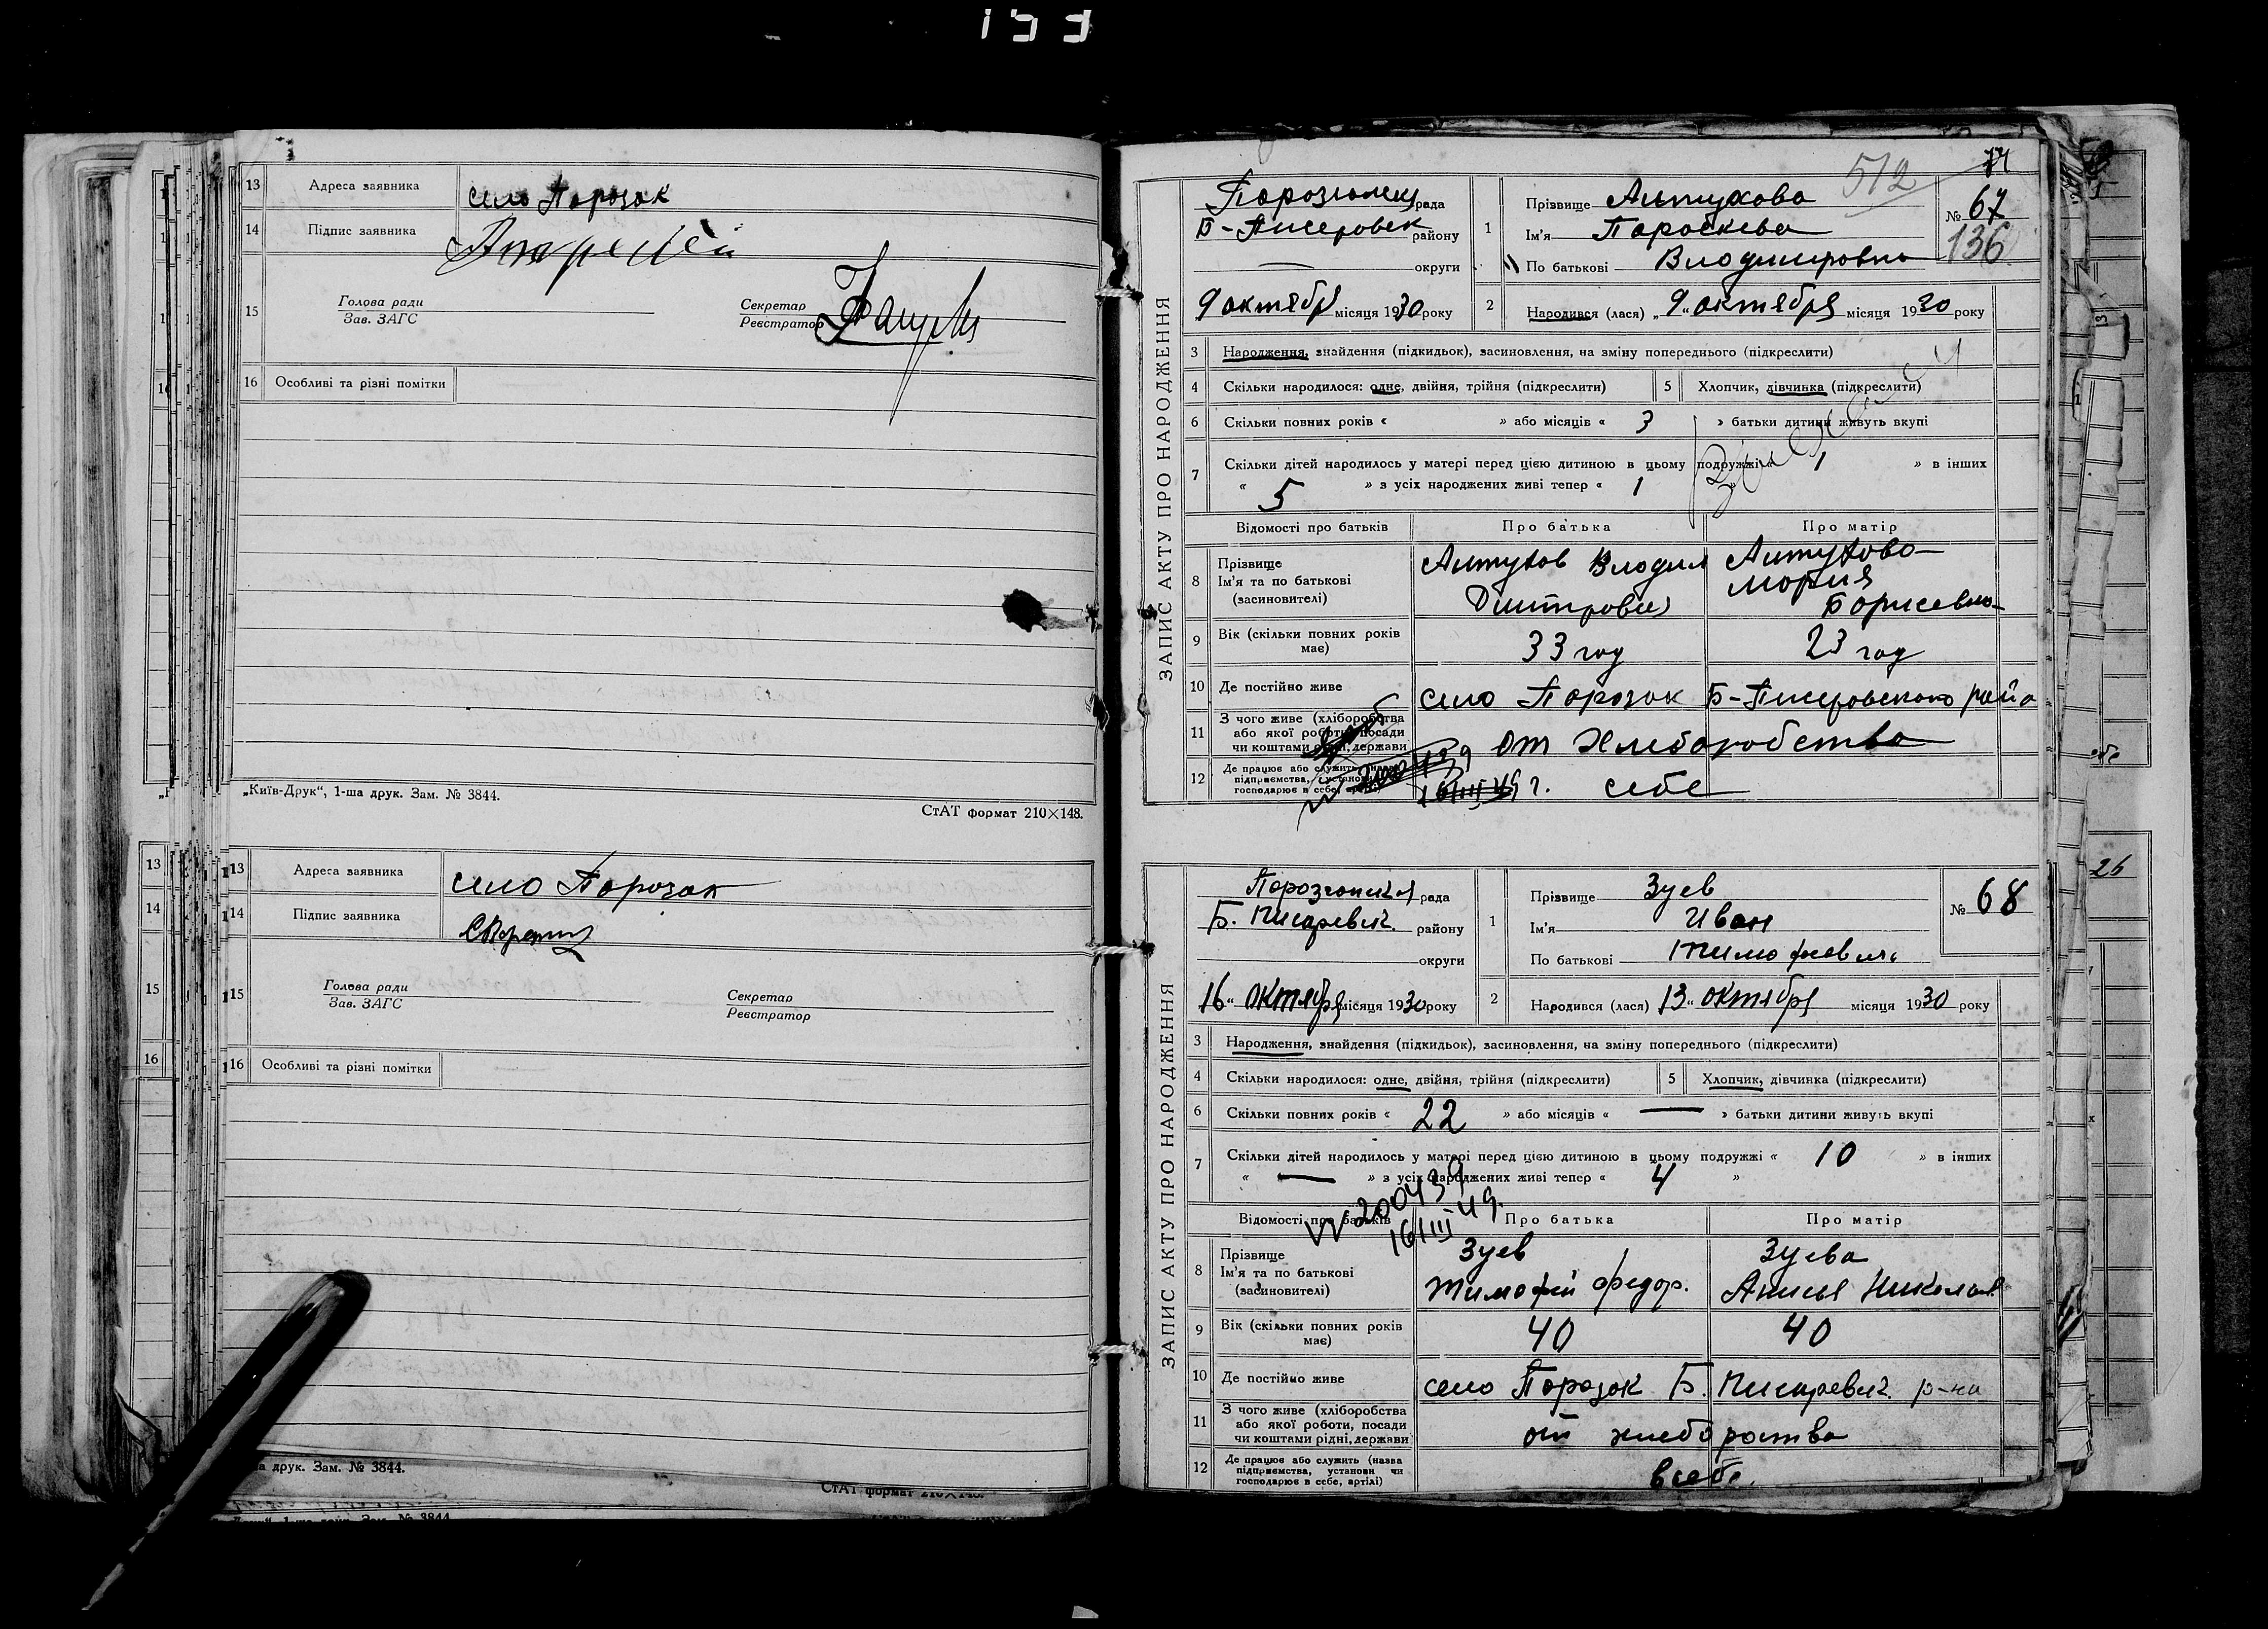 13 Адреса заявника село Порозок
14 Підпис заявника
15 Голова ради
Зав. ЗАГС
Секретар
Реєстратор
16 Особливі та різні помітки
„Київ-Друк“, 1-ша друк. Зам. № 3844.
СтАТ формат 210×148.
13 Адреса заявника село Порозок
14 Підпис заявника
15 Голова ради
Зав. ЗАГС
Секретар
Реєстратор
16 Особливі та різні помітки
друк. Зам. № 3844.
СтАТ формат 210×148.
512
ЗАПИС АКТУ ПРО НАРОДЖЕННЯ
рада
Б- района
району
округи
9 октября місяця 1930 року
1 Прізвище Алтухова
Ім'я Пароскева
По батькові Владимировна
№ 67
136
2 Народився (лася) „9“ октября місяця 1930 року
3 Народження, знайдення (підкидьок), засиновлення, на зміну попереднього (підкреслити)
4 Скільки народилося: одне, двійня, трійня (підкреслити) 5 Хлопчик, дівчинка (підкреслити)
6 Скільки повних років « » або місяців « 3 » батьки дитини живуть вкупі
7 Скільки дітей народилось у матері перед цією дитиною в цьому подружжі « 1 » в інших
« 5 » з усіх народжених живі тепер « 1
Відомості про батьків Про батька Про матір
8 Прізвище Ім'я та по батькові (засиновителі)
Алтухов Владим Дмитрович
Алтухова Мория Борисевна
9 Вік (скільки повних років має) 33 год 23 год
10 Де постійно живе село Порозок Б-Писеровского райо
11 З чого живе (хліборобства або якої роботи, посади чи коштами рідні, держави От Хлеборобства
12 Де працює або служить (назва підприємства, установи чи господарює в себе, артілі) себе
ЗАПИС АКТУ ПРО НАРОДЖЕННЯ
Порозчонская рада
Б. Писаревск. району
округи
16“ октября місяця 1930 року
1 Прізвище Зуев
Ім'я Иван
По батькові Тимофеевич
№ 68
2 Народився (лася) 13“ октября місяця 1930 року
3 Народження, знайдення (підкидьок), засиновлення, на зміну попереднього (підкреслити)
4 Скільки народилося: одне, двійня, трійня (підкреслити) 5 Хлопчик, дівчинка (підкреслити)
6 Скільки повних років « 22 » або місяців « — » батьки дитини живуть вкупі
7 Скільки дітей народилось у матері перед цією дитиною в цьому подружжі « 10 » в інших
« — » з усіх народжених живі тепер « 4 »
200439
16/III 49.
Відомості про батьків Про батька Про матір
8 Прізвище Ім'я та по батькові (засиновителі)
Зуев Тимофей Федор.
Зуева Анисья Николаев
9 Вік (скільки повних років має) 40 40
10 Де постійно живе село Порозок Б. Писаревск. р-на
11 З чого живе (хліборобства або якої роботи, посади чи коштами рідні, держави от хлеборотва
12 Де працює або служить (назва підприємства, установи чи господарює в себе, артілі) в себе.
26